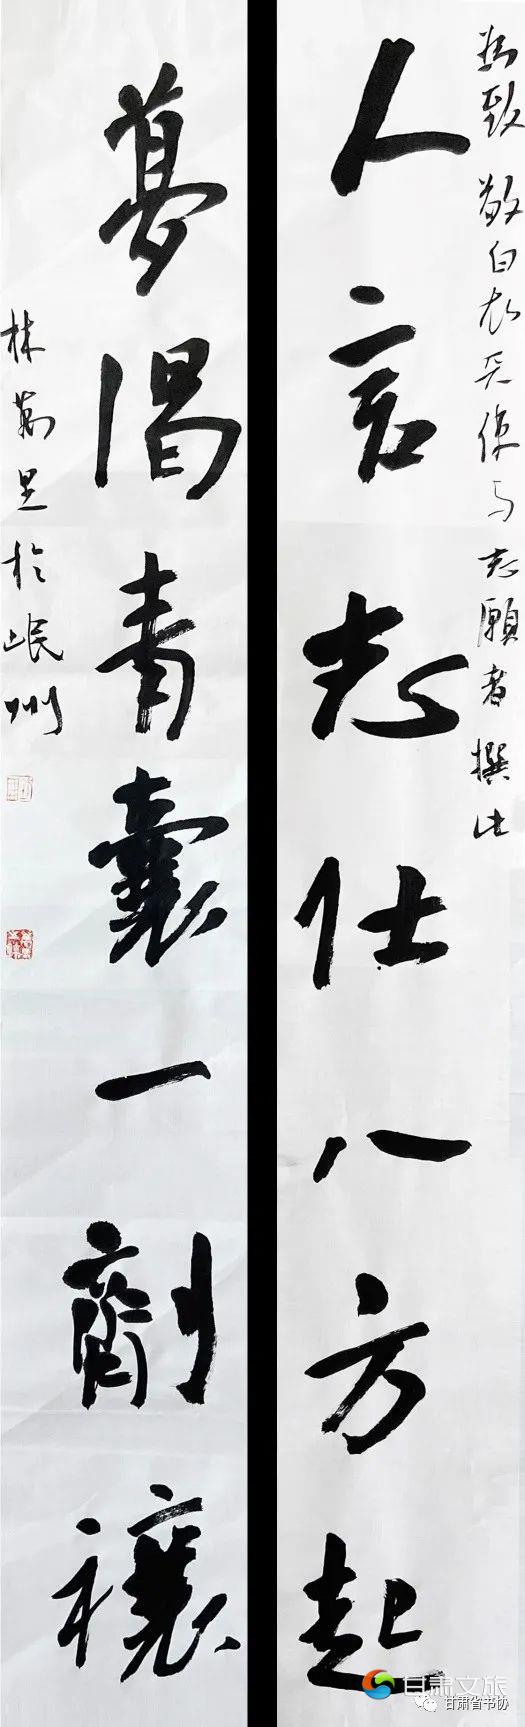 為致敬白衣天使与志願者撰此
人言志仕八方起
夢倡青囊一劑禳
林 於岷州
甘肃文旅
甘肃省书协